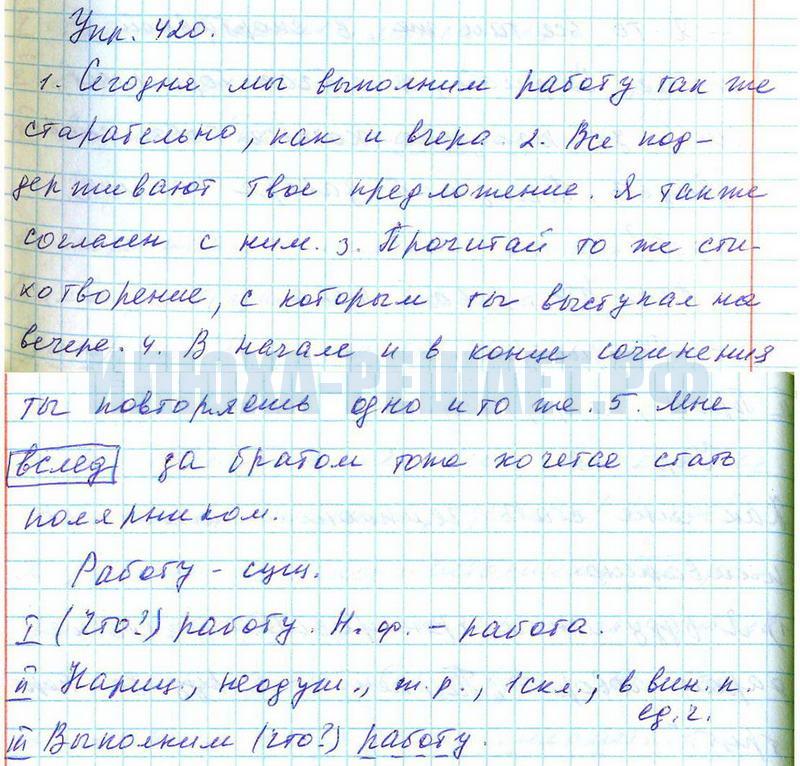 Упр. 420.
1. Сегодня мы выполним работу так же
старательно, как и вчера. 2. Все под-
держивают твое предложение. Я также
согласен с ним. 3. Прочитай то же сти-
хотворение, с которым ты выступал на
вечере. 4. В начале и в конце сочинения
ИЛЮХА-РЕШАЕТ.РФ
ты повторяешь одно и то же. 5. Мне
вслед за братом тоже хочется стать
полярником.
Работу - сущ.
I (Что?) работу. Н. ф. - работа.
II Нариц., неодуш., ж. р., 1 скл.; в вин. п.
ед. ч.
III Выполним (что?) работу.